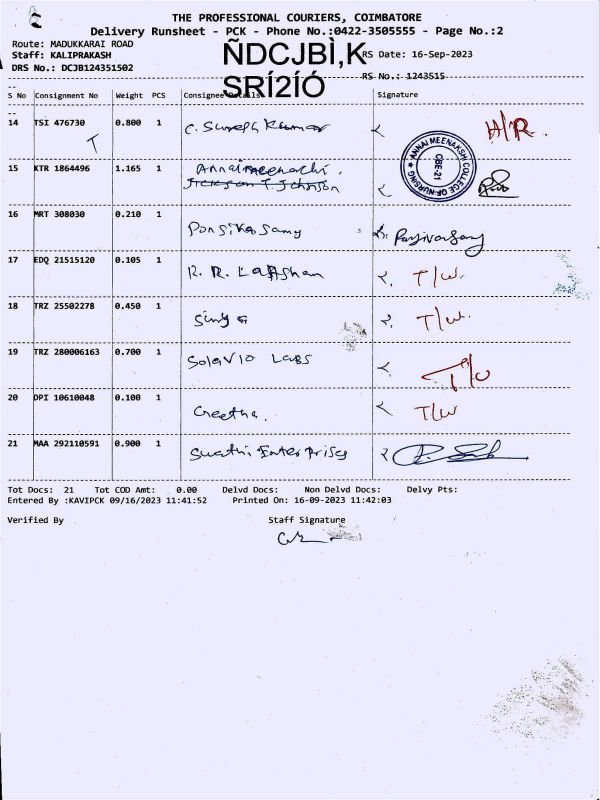 THE PROFESSIONAL COURIERS, COIMBATORE
Delivery Runsheet - PCK - Phone No.:0422-3505555 - Page No.:2
Route: MADUKKARAI ROAD
Staff: KALIPRAKASH
RS Date: 16-Sep-2023
DRS No.: DCJB124351502
ÑDCJBÌ,K
SRÍ2ÍÓ
RS No.: 1243515
S No Consignment No Weight PCS Consignee Details Signature
14 TSI 476730 0.800 1 C. Suresh Kumar H/R.
T
15 KTR 1864496 1.165 1 Annaimeenachi.
Jickson T Johnson
ANNAI MEENAKSHI COLLEGE OF NURSING
CBE-21
16 MRT 308030 0.210 1 Ponsikasamy
17 EDQ 21515120 0.105 1 R. R. Lakshan T/W.
18 TRZ 25502278 0.450 1 T/W.
19 TRZ 280006163 0.700 1 Solavio Labs
20 DPI 10610048 0.100 1 Geetha. T/W
21 MAA 292110591 0.900 1 Swathi Enterprises
Tot Docs: 21 Tot COD Amt: 0.00 Delvd Docs: Non Delvd Docs: Delvy Pts:
Entered By :KAVIPCK 09/16/2023 11:41:52 Printed On: 16-09-2023 11:42:03
Verified By Staff Signature